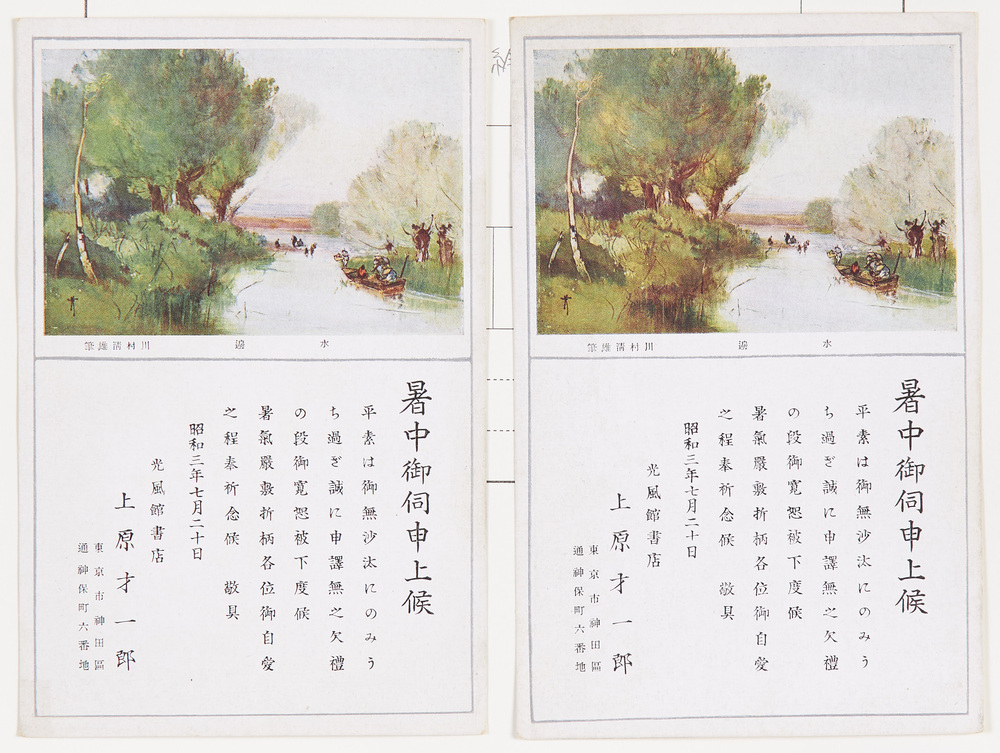 水邊 川村清雄筆
暑中御伺申上候
平素は御無沙汰にのみう
ち過ぎ誠に申譯無之欠禮
の段御寛恕被下度候
暑氣嚴敷折柄各位御自愛
之程奉祈念候 敬具
昭和三年七月二十日
光風館書店
上原才一郎
東京市神田區
通神保町六番地
水邊 川村清雄筆
暑中御伺申上候
平素は御無沙汰にのみう
ち過ぎ誠に申譯無之欠禮
の段御寛恕被下度候
暑氣嚴敷折柄各位御自愛
之程奉祈念候 敬具
昭和三年七月二十日
光風館書店
上原才一郎
東京市神田區
通神保町六番地